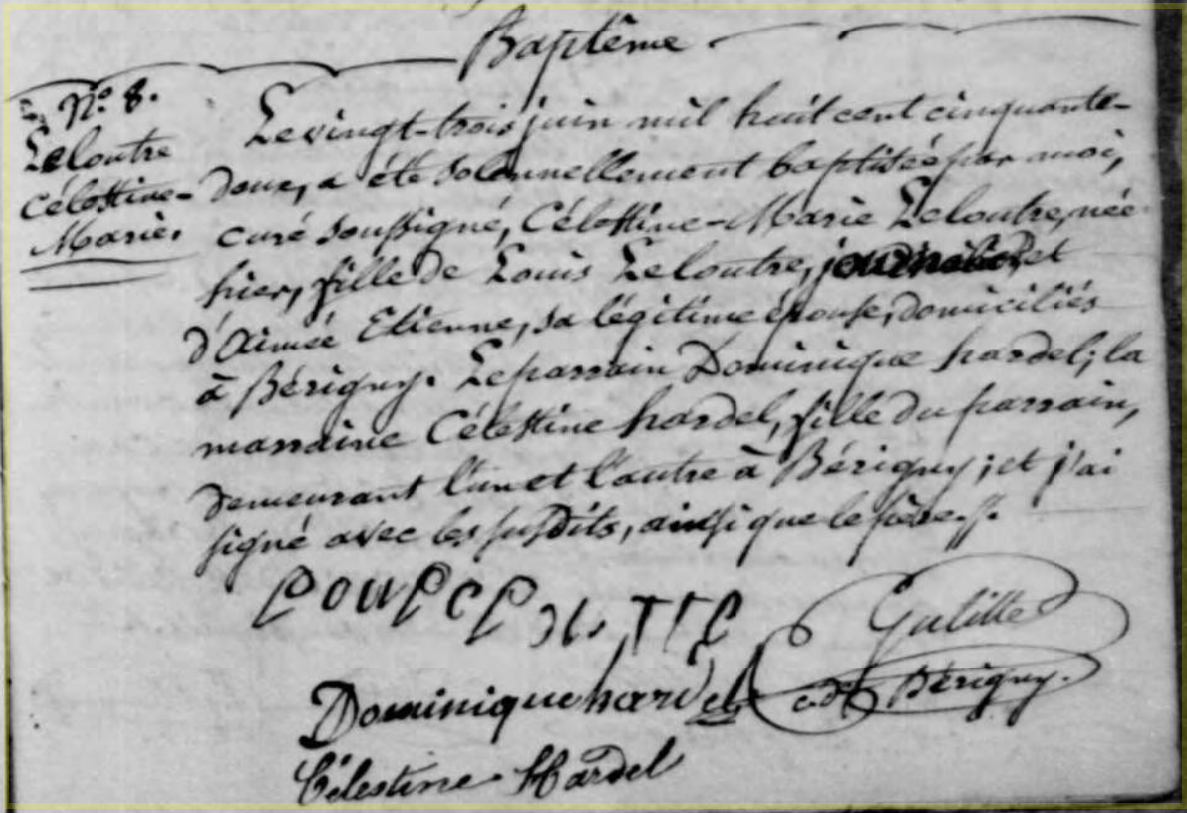 Baptême
N° 8.
Leloutre
Célestine-
Marie.
Le vingt-trois juin mil huit cent cinquante-
deux, a été solennellement baptisée par moi,
curé soussigné, Célestine-Marie Leloutre, née
hier, fille de Louis Leloutre, journalier, et
d'Aimée Etienne, sa légitime épouse, domiciliés
à Bérigny. Le parrain Dominique hardel; la
marraine Célestine hardel, fille du parrain,
demeurant l'un et l'autre à Bérigny; et j'ai
signé avec les susdits, ainsi que le père.
Dominique hardel
Bérigny.
Célestine Hardel